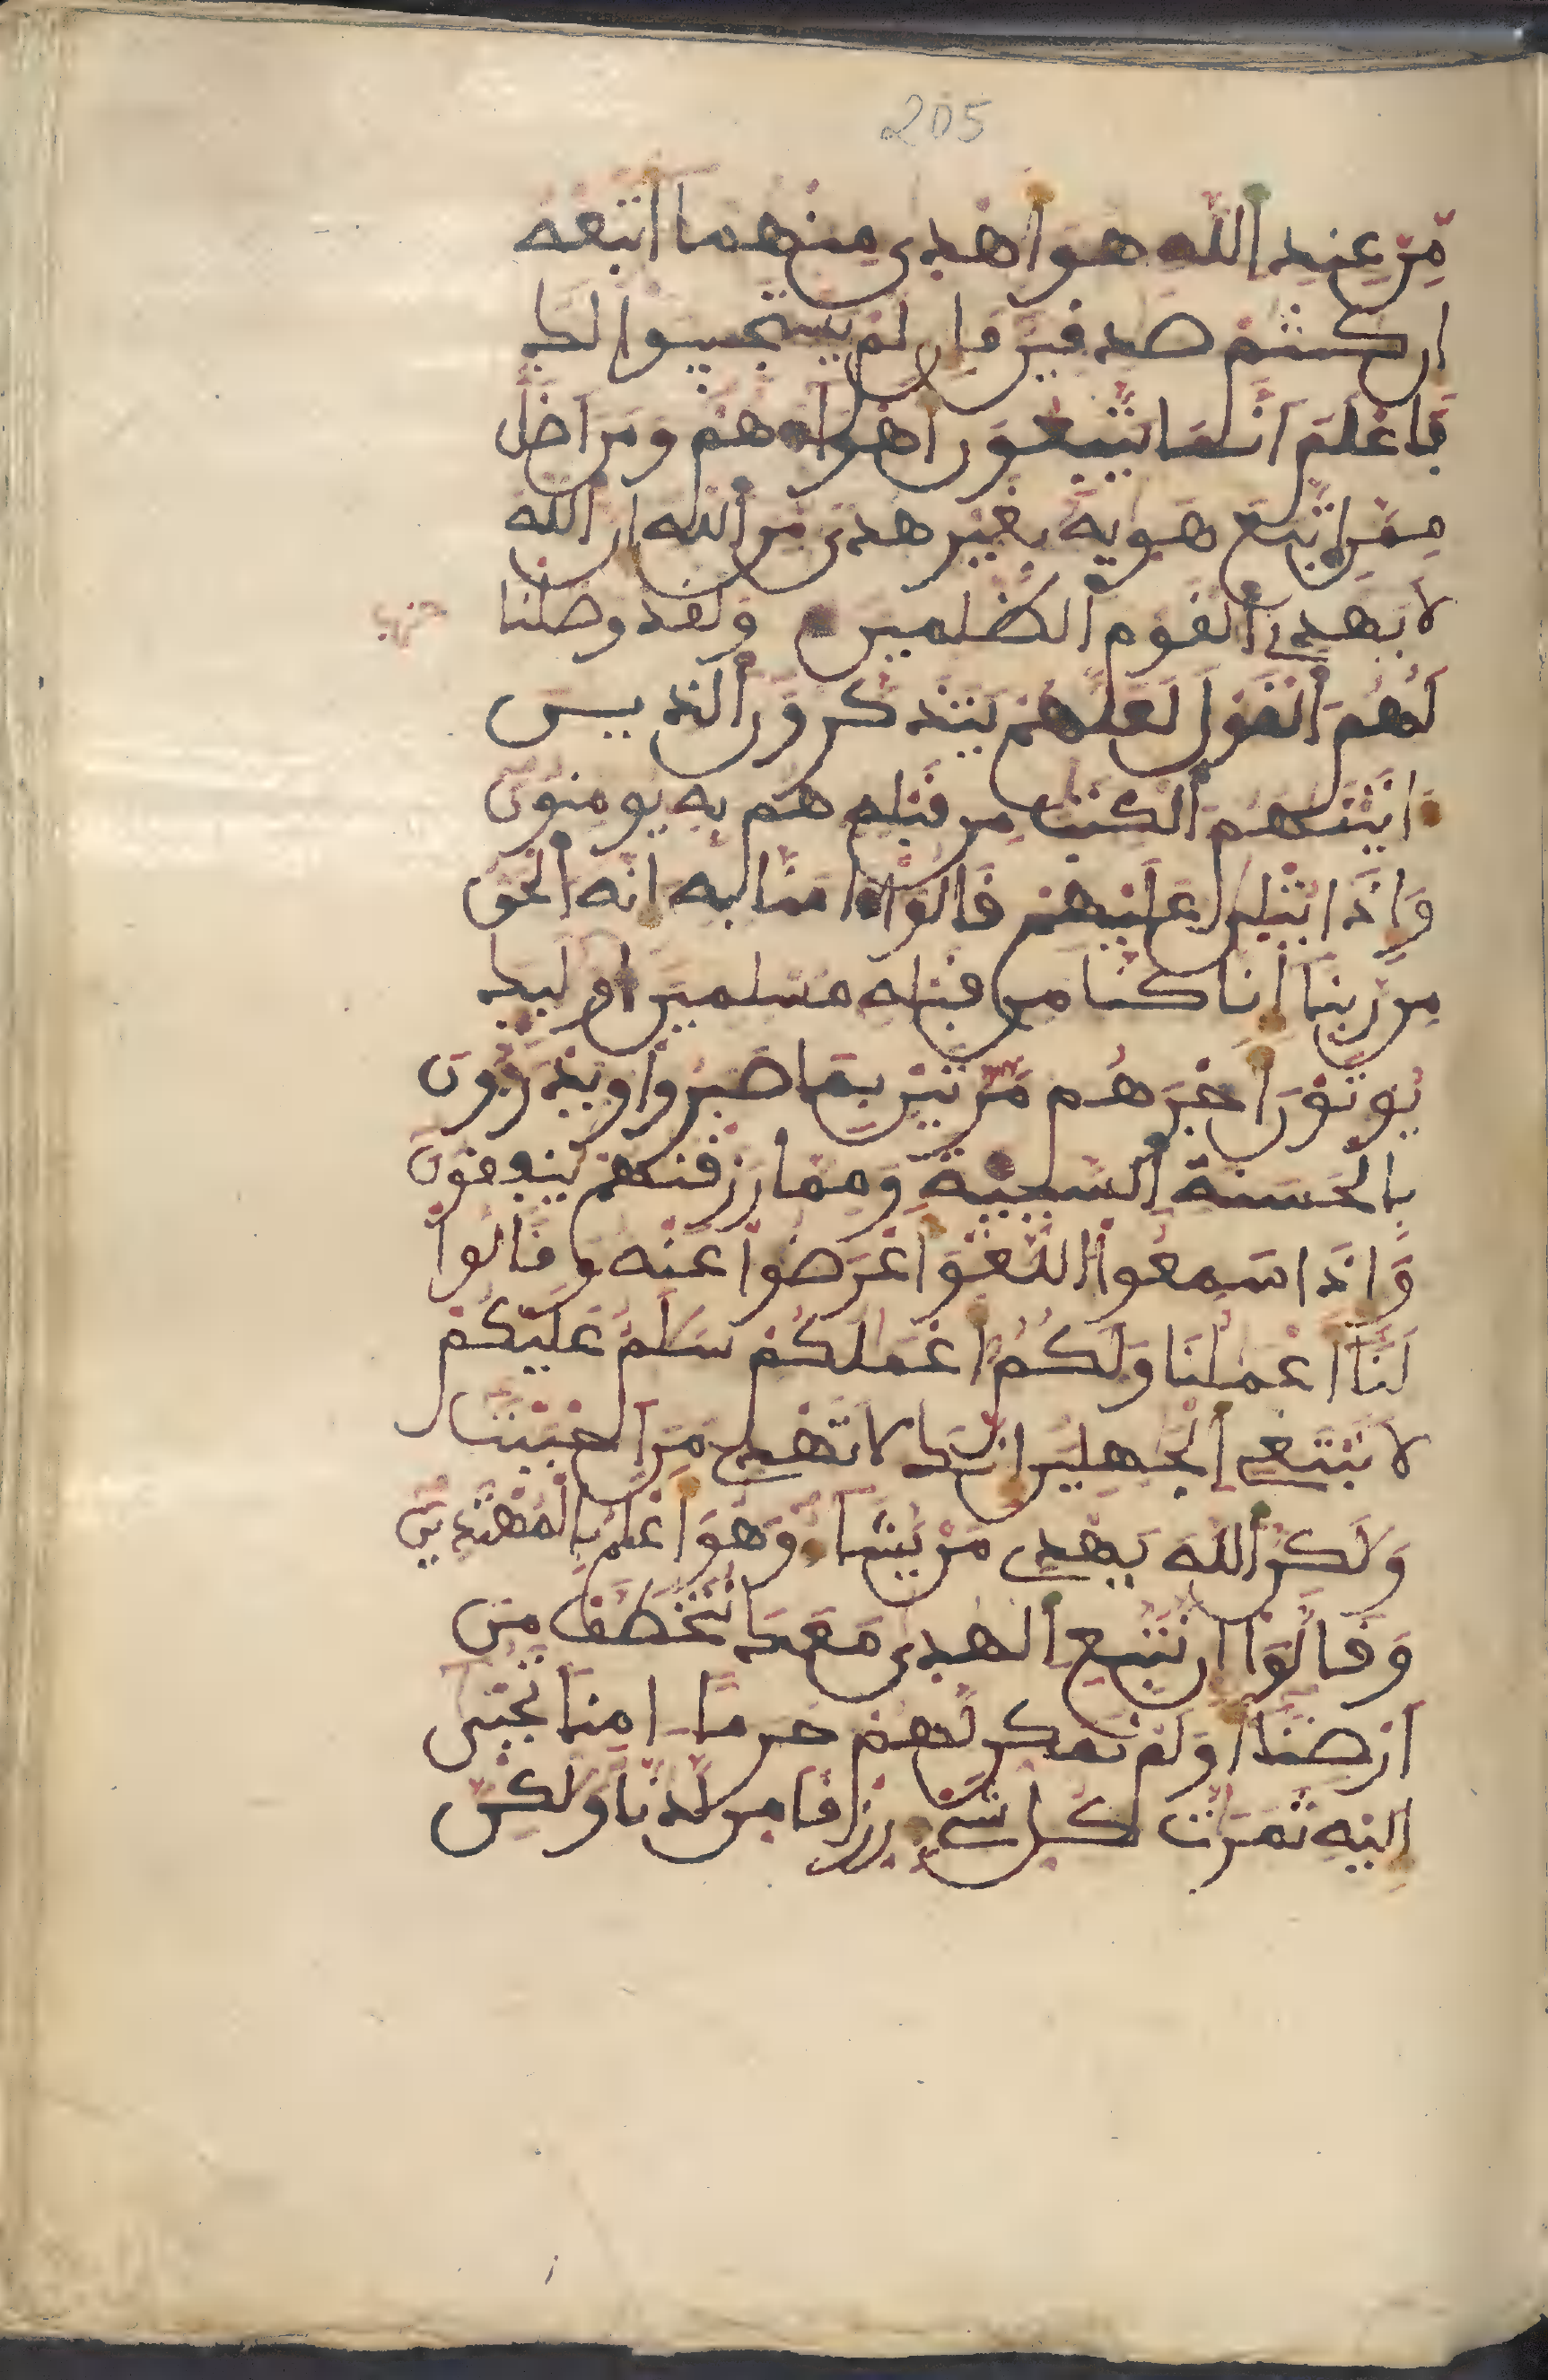 205
مِّن عِندِ اللَّهِ هُوَ أَهْدَى مِنْهُمَا أَتَّبِعْهُ
إن كنتمْ صدقينَ فإن لمْ يستجيبوا لك
فَاعْلَمَ انَّمَا يَتَّبِعُونَ أَهْوَاءَهُمْ وَمَنَ اضَلُّ
مِمَّنِ اتَّبَعَ هَوَيهُ بِغَيْرِ هُدًى مِّنَ اللَّهِ إن اللَّهَ
لَا يَهْدِي الْقَوْمَ الظَّلِمِينَ وَلَقَد وَصَّلْنَا
لَهُمُ الْقَوْلَ لَعَلَّهُمْ يَتَذَكَّرُونَ الذِينَ
ءَاتَيْنَهُمُ الْكِتَبَ مِن قَبْلِهِ هُم بِهِ يُومِنُونَ
وَإِذَا يُتْلَى عَلَيْهِمْ قَالُوا ءَامَنَّا بِهِ إِنَّهُ الْحَقُّ
مِن رَّبِّنَا إِنَّا كُنَّا مِن قَبْلِهِ مُسْلِمِينَ أُوْلَئِكَ
يُوتَوْنَ أَجْرَهُم مَّرَّتَيْنِ بِمَا صَبَرُوا وَيَدْرَءُونَ
بِالْحَسَنَةِ السَّيِّئَةَ وَمِمَّا رَزَقْنَهُمْ يُنفِقُونَ
وَإِذَا سَمِعُوا اللَّغْوَ أَعْرَضُوا عَنْهُ وَقَالُوا
لَنَا أَعْمَلُنَا وَلَكُمُ أَعْمَلُكُمْ سَلَمٌ عَلَيْكُمْ
لَا نَبْتَغِي الْجَهِلِينَ إِنَّكَ لَا تَهْدِي مَنَ احْبَبْتَ
وَلَكِنَّ اللَّهَ يَهْدِي مَنْ يَّشَاءُ وَهُوَ أَعْلَمُ بِالْمُهْتَدِينَ
وَقَالُوا إِن نَّتَّبِعِ الْهُدَى مَعَكَ نُتَخَطَّفْ مِن
أَرْضِنَا أَوَلَمْ نُمَكِّن لَّهُمْ حَرَمًا ءَامِنًا تُجْبَى
إِلَيْهِ ثَمَرَتُ كُلِّ شَيْءٍ رِّزْقًا مِّن لَّدُنَّا وَلَكِنَّ